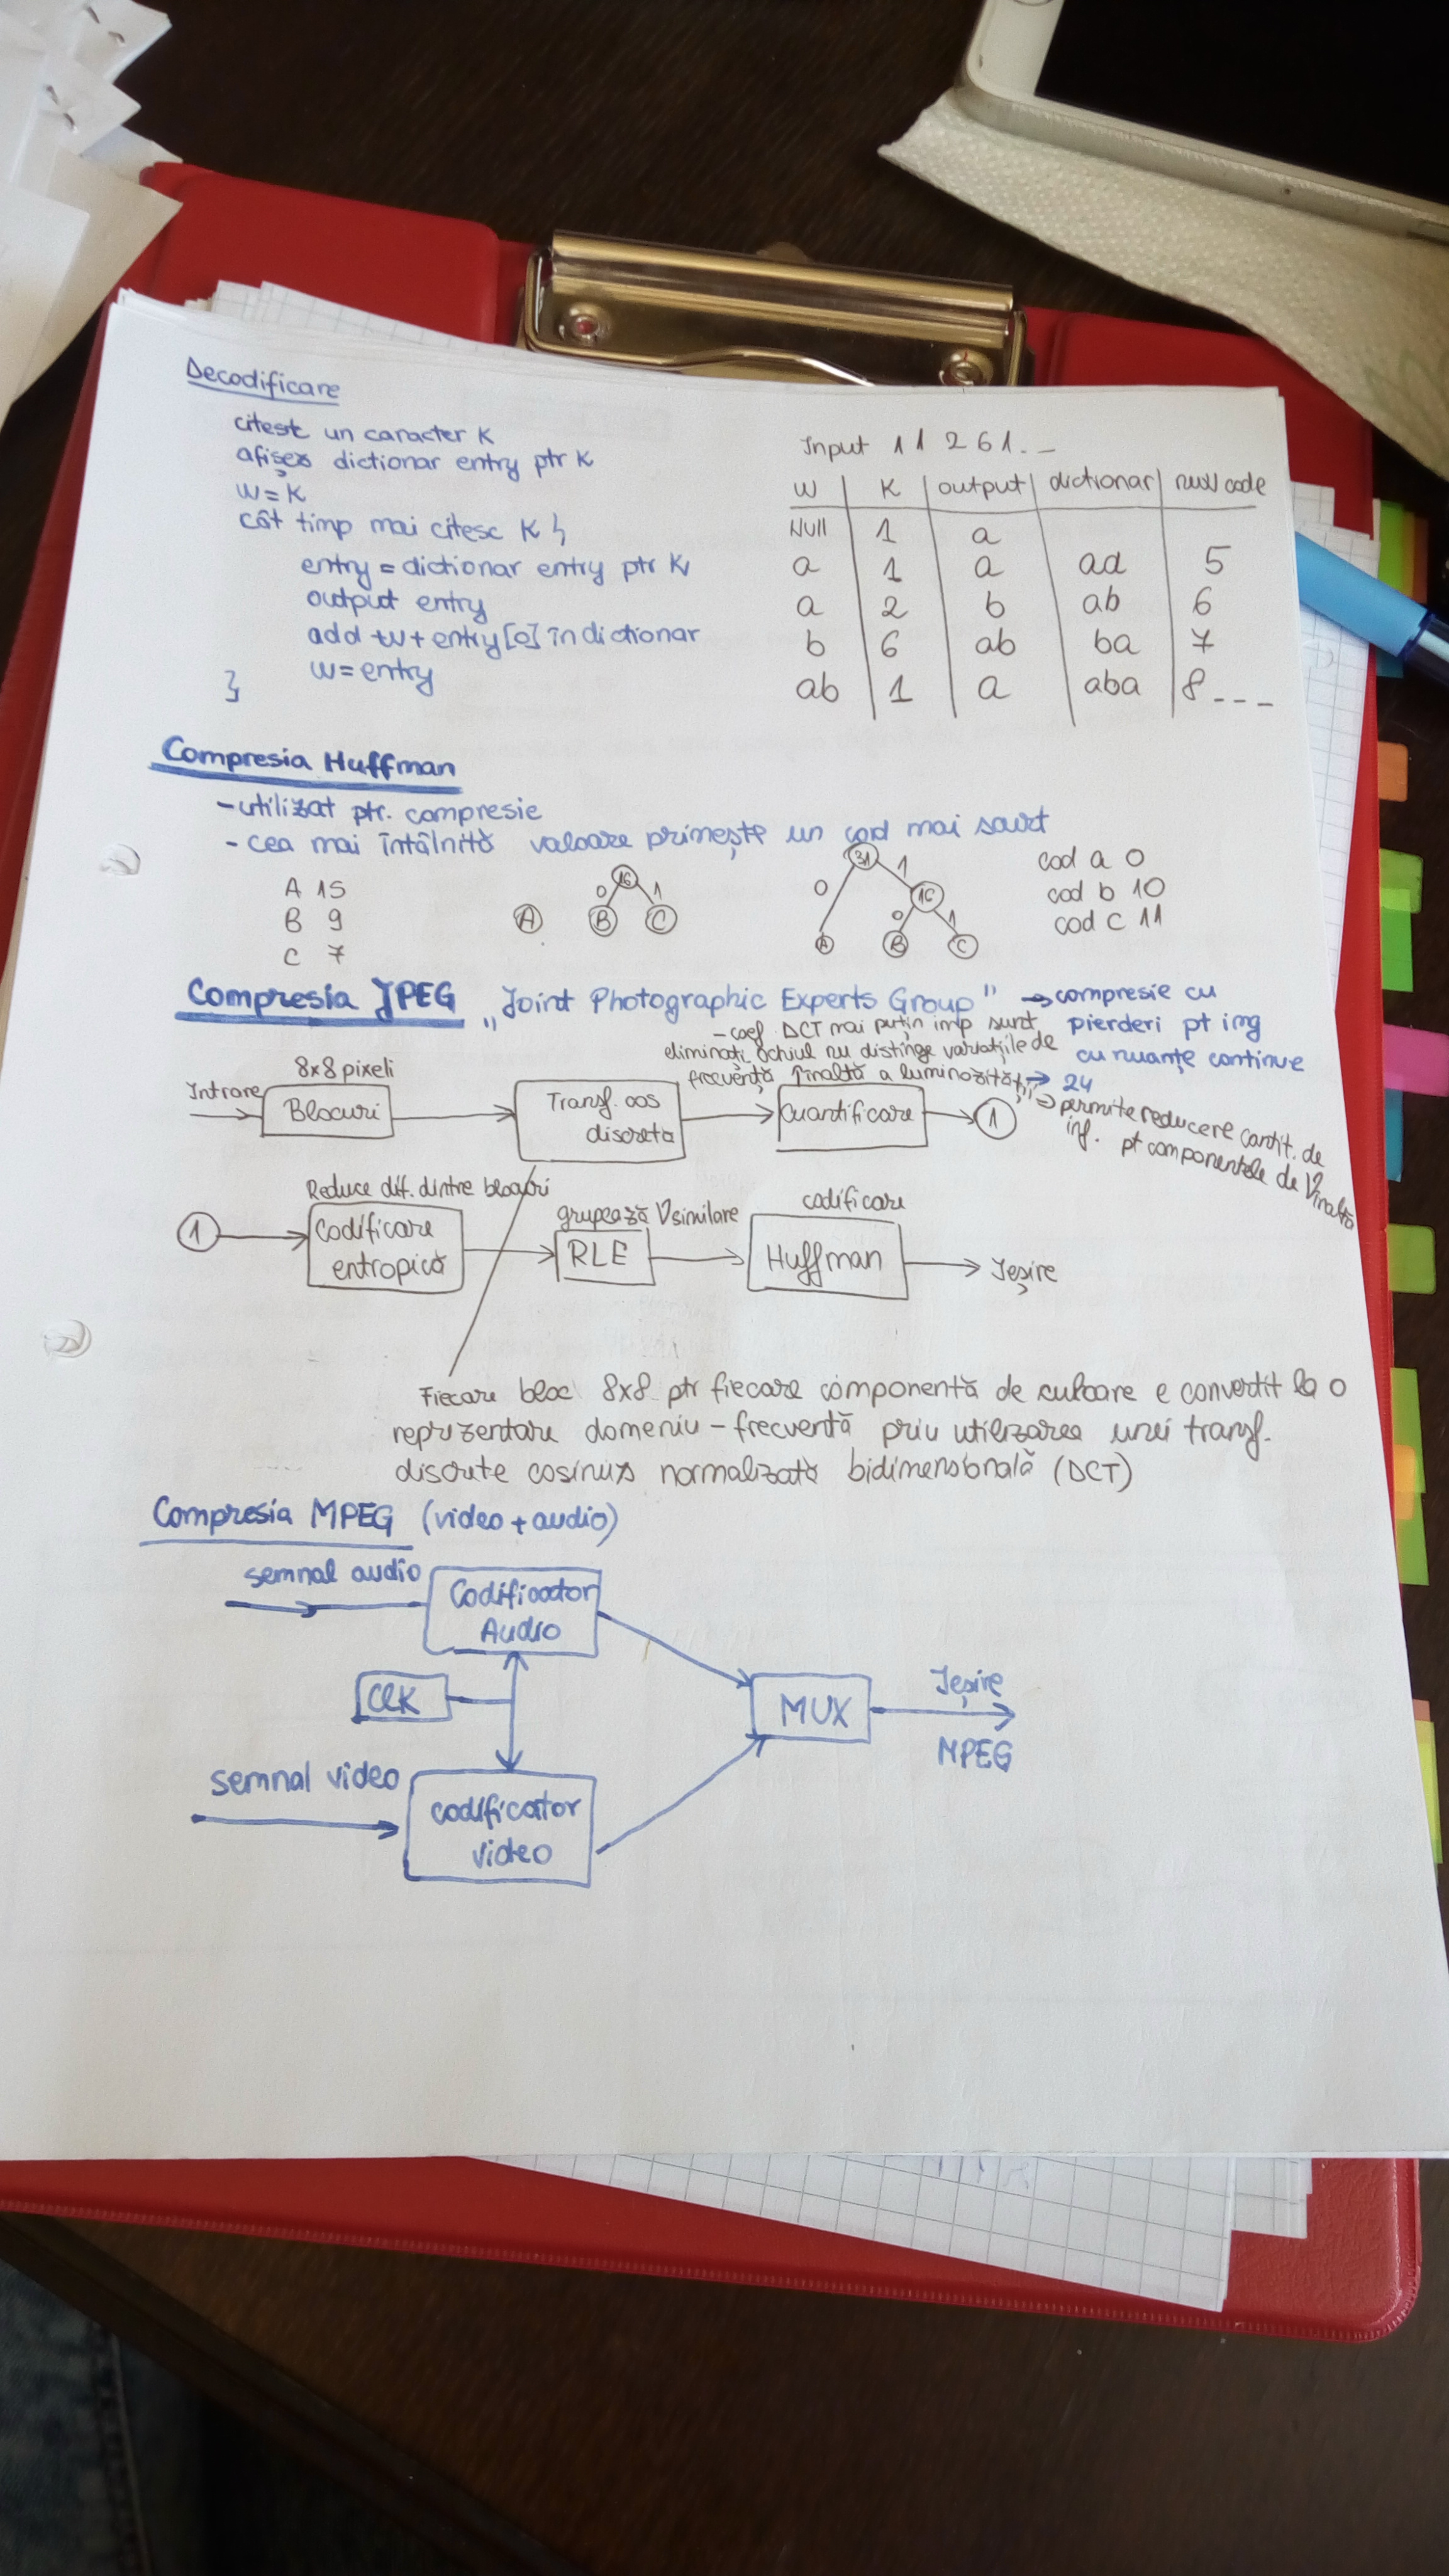 Decodificare
citesc un caracter K
afișez dictionar entry ptr K
W = K
cât timp mai citesc K {
entry = dictionar entry ptr K
output entry
add w + entry[0] în dictionar
w = entry
}
Input 1 1 2 6 1 . _
W K output dictionar next code
NULL 1 a
a 1 a aa 5
a 2 b ab 6
b 6 ab ba 7
ab 1 a aba 8 _ _ _
Compresia Huffman
- utilizat ptr. compresie
- cea mai întâlnită valoare primește un cod mai scurt
A 15
B 9
C 7
16
0 1
A B C
31
0 1
16
0 1
A B C
cod a 0
cod b 10
cod c 11
Compresia JPEG „Joint Photographic Experts Group” → compresie cu
pierderi pt img
cu nuanțe continue
→ 24
- coef DCT mai puțin imp sunt
eliminați, ochiul nu distinge variațiile de
frecvență înaltă a luminozității
→ permite reducere cantit. de
inf. pt componentele de V înaltă
8x8 pixeli
Intrare Blocuri Transf. cos discretă Cuantificare 1
Reduce dif. dintre blocuri
grupează V similare
codificare
1 Codificare entropică RLE Huffman Ieșire
Fiecare bloc 8x8 ptr fiecare componentă de culoare e convertit la o
reprezentare domeniu - frecvență prin utilizarea unei transf.
discrete cosinus normalizată bidimensională (DCT)
Compresia MPEG (video + audio)
semnal audio
Codificator
Audio
CLK
MUX
Ieșire
MPEG
semnal video
codificator
video